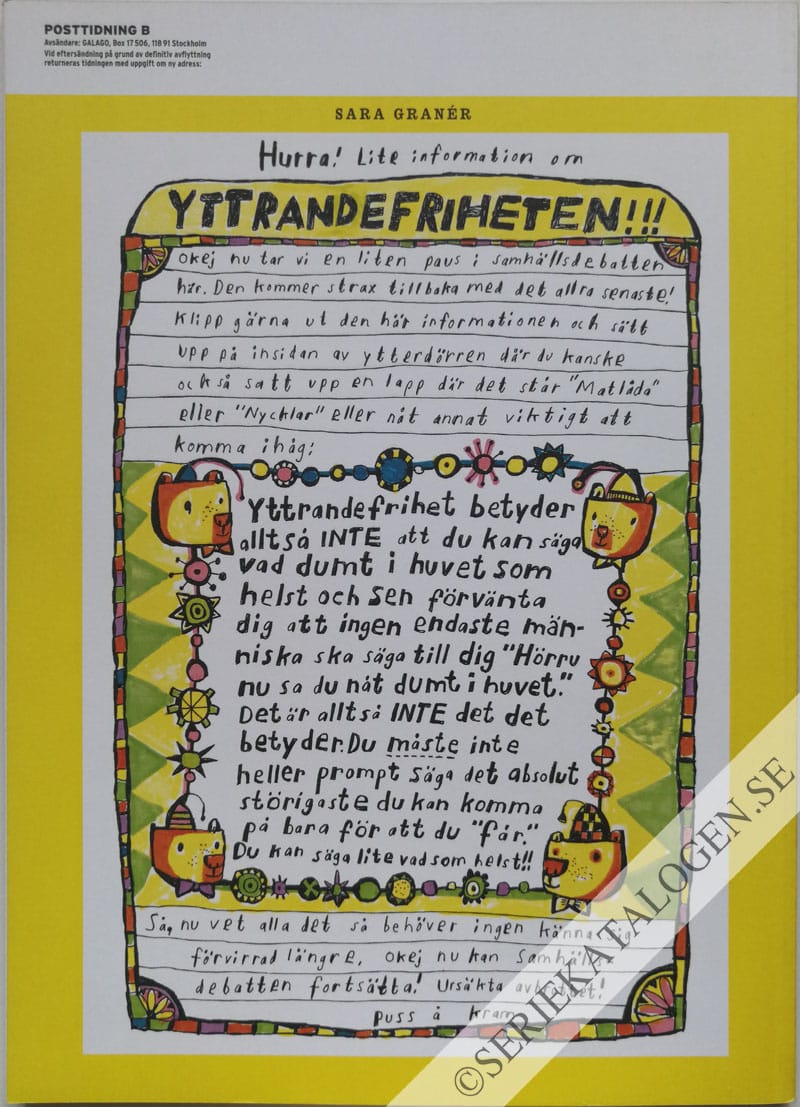 POSTTIDNING B
Avsändare: GALAGO, Box 17 506, 118 91 Stockholm
Vid eftersändning på grund av definitiv avflyttning
returneras tidningen med uppgift om ny adress:
SARA GRANÉR
Hurra! Lite information om
YTTRANDEFRIHETEN!!!
Okej nu tar vi en liten paus i samhällsdebatten
här. Den kommer strax tillbaka med det allra senaste!
Klipp gärna ut den här informationen och sätt
upp på insidan av ytterdörren där du kanske
också satt upp en lapp där det står "Matlåda"
eller "Nycklar" eller nåt annat viktigt att
komma ihåg:
Yttrandefrihet betyder
alltså INTE att du kan säga
vad dumt i huvet som
helst och sen förvänta
dig att ingen endaste män-
niska ska säga till dig "Hörru
nu sa du nåt dumt i huvet."
Det är alltså INTE det det
betyder. Du måste inte
heller prompt säga det absolut
störigaste du kan komma
på bara för att du "får."
Du kan säga lite vad som helst!!
Så, nu vet alla det så behöver ingen känna sig
förvirrad längre, okej nu kan samhälls-
debatten fortsätta! Ursäkta avbrottet!
puss å kram
©SERIEKATALOGEN.SE